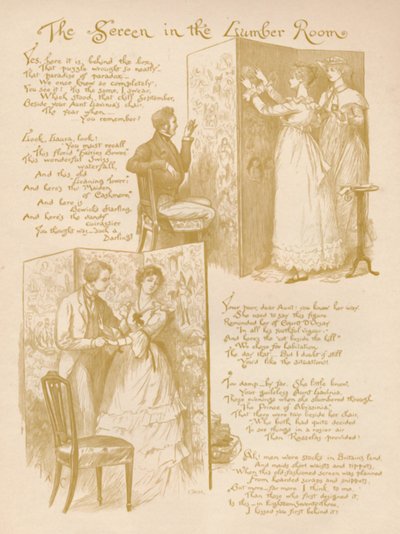 The Screen in the Lumber Room
Yes, here it is, behind the box,
That puzzle wrought so neatly—
That paradise of paradox—
We once knew so completely;
You see it? 'Tis the same, I swear,
Which stood, that chill September,
Beside your Aunt Lavinia's chair,
The year when
You remember!
Look, Laura, look!
You must recall
This florid "Fairies' Bower,"
This wonderful Swiss
waterfall,
And this old
"Leaning Tower";
And here's the "Maiden
of Cashmere,"
And here is
Bewick's Starling,
And here's the dandy
cuirassier
You thought was "such a
Darling!"
Your poor dear Aunt! you know her way,
She used to say this figure
Reminded her of Count D'Orsay
"In all his youthful vigour";
And here's the "cot beside the hill"
We chose for habitation,
The day that— But I doubt if still
You'd like the situation!
Too damp—by far. She little knew,
Your guileless Aunt Lavinia,
Those evenings when she slumbered through
"The Prince of Abyssinia,"
That there were two beside her chair
Who both had quite decided
To see things in a rosier air
Than Rasselas provided!
Ah! men wore stocks in Britain's land,
And maids short waists and tippets,
When this old-fashioned screen was planned
From hoarded scraps and snippets;
But more—far more, I think—to me
Than those who first designed it,
Is this—in Eighteen Seventy-Three
I kissed you first behind it!